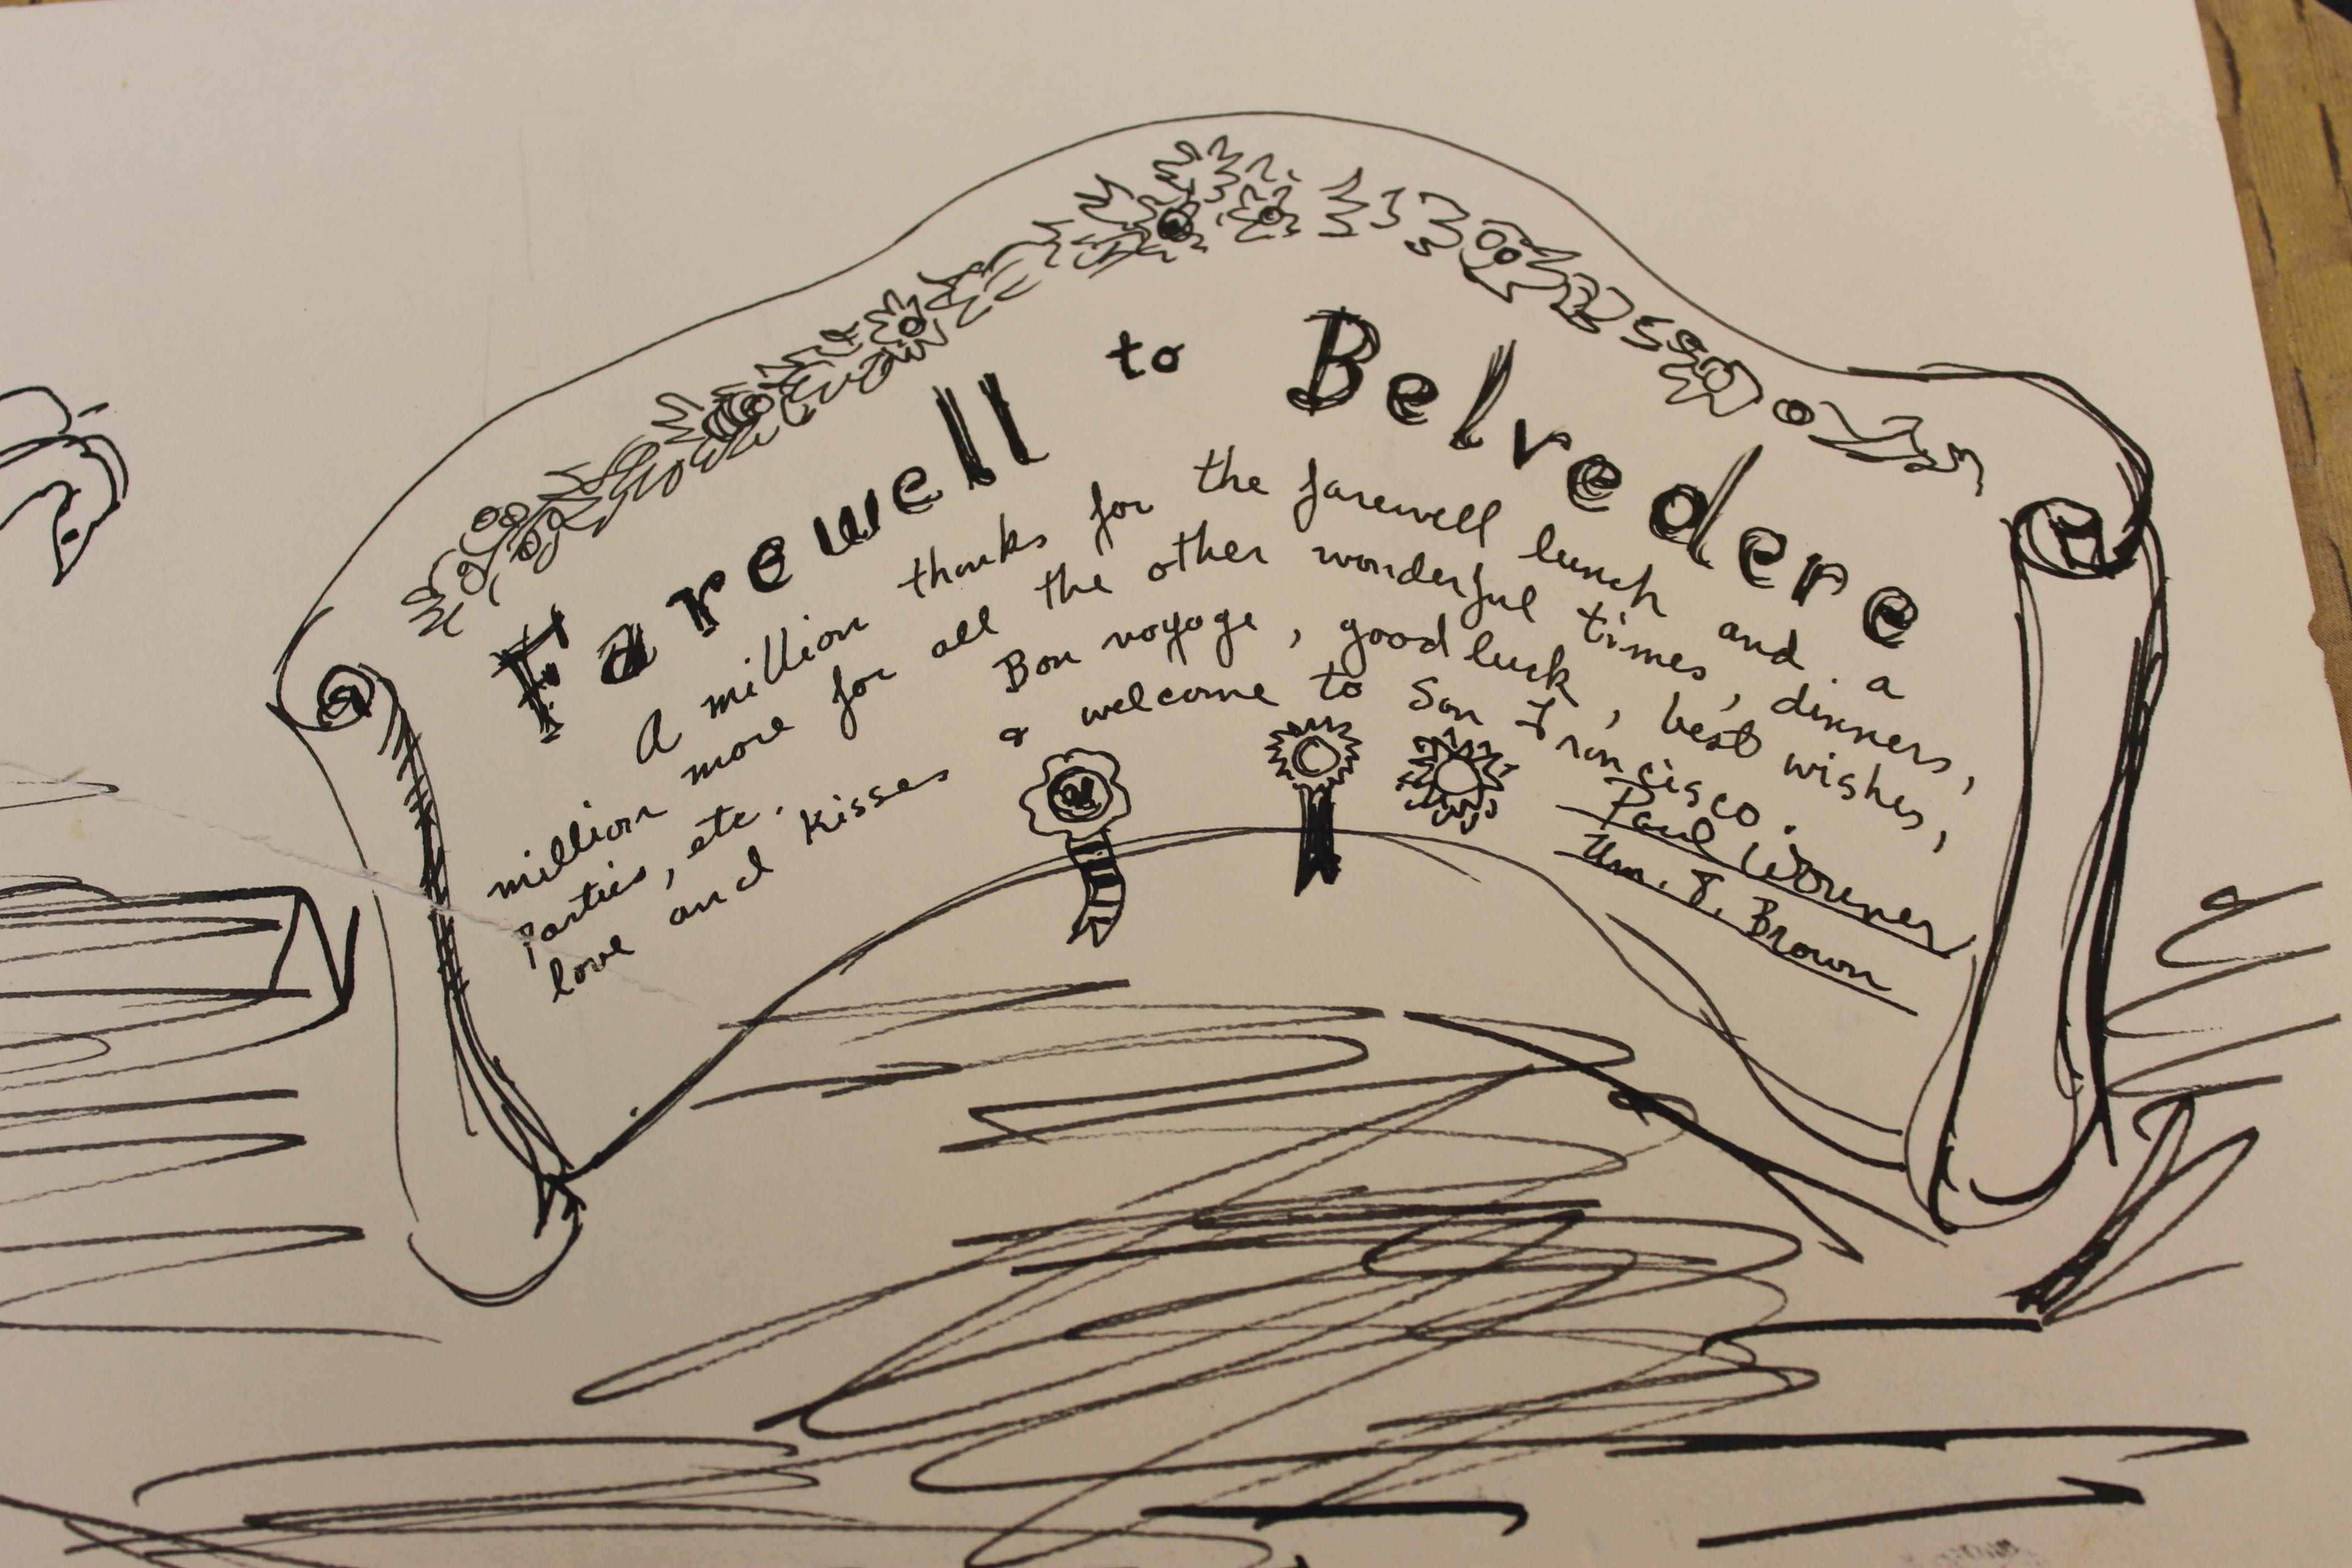 Farewell to Belvedere
A million thanks for the farewell lunch and a
million more for all the other wonderful times, dinners,
Parties, etc. Bon voyage, good luck, best wishes,
love and kisses & welcome to San Francisco.
Paul Wonner
Wm. T. Brown